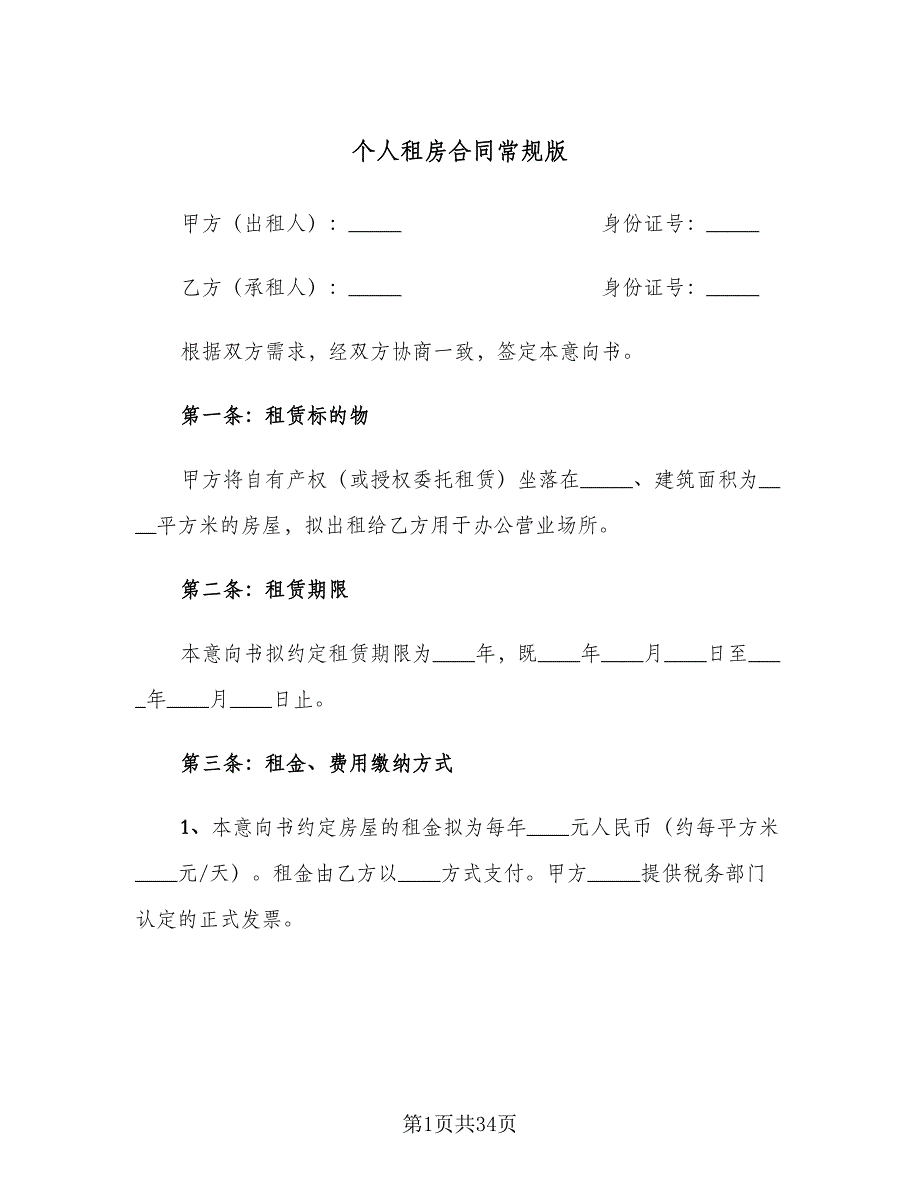 个人租房合同常规版
甲方（出租人）：_____ 身份证号：_____
乙方（承租人）：_____ 身份证号：_____
根据双方需求，经双方协商一致，签定本意向书。
第一条：租赁标的物
甲方将自有产权（或授权委托租赁）坐落在_____、建筑面积为__
__平方米的房屋，拟出租给乙方用于办公营业场所。
第二条：租赁期限
本意向书拟约定租赁期限为____年，既____年____月____日至___
_年____月____日止。
第三条：租金、费用缴纳方式
1、本意向书约定房屋的租金拟为每年____元人民币（约每平方米
____元/天）。租金由乙方以____方式支付。甲方_____提供税务部门
认定的正式发票。
第1页共34页